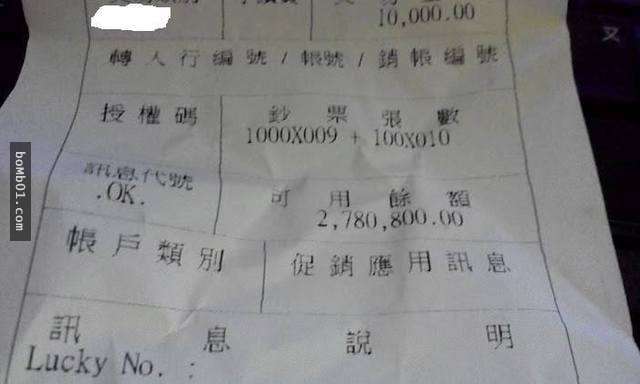 10,000.00
轉入行編號 / 帳號 / 銷帳編號
授權碼
鈔票張數
1000X009 + 100X010
訊息代號
.OK.
可用餘額
2,780,800.00
帳戶類別
促銷應用訊息
訊息說明
Lucky No. :
boMb01.com